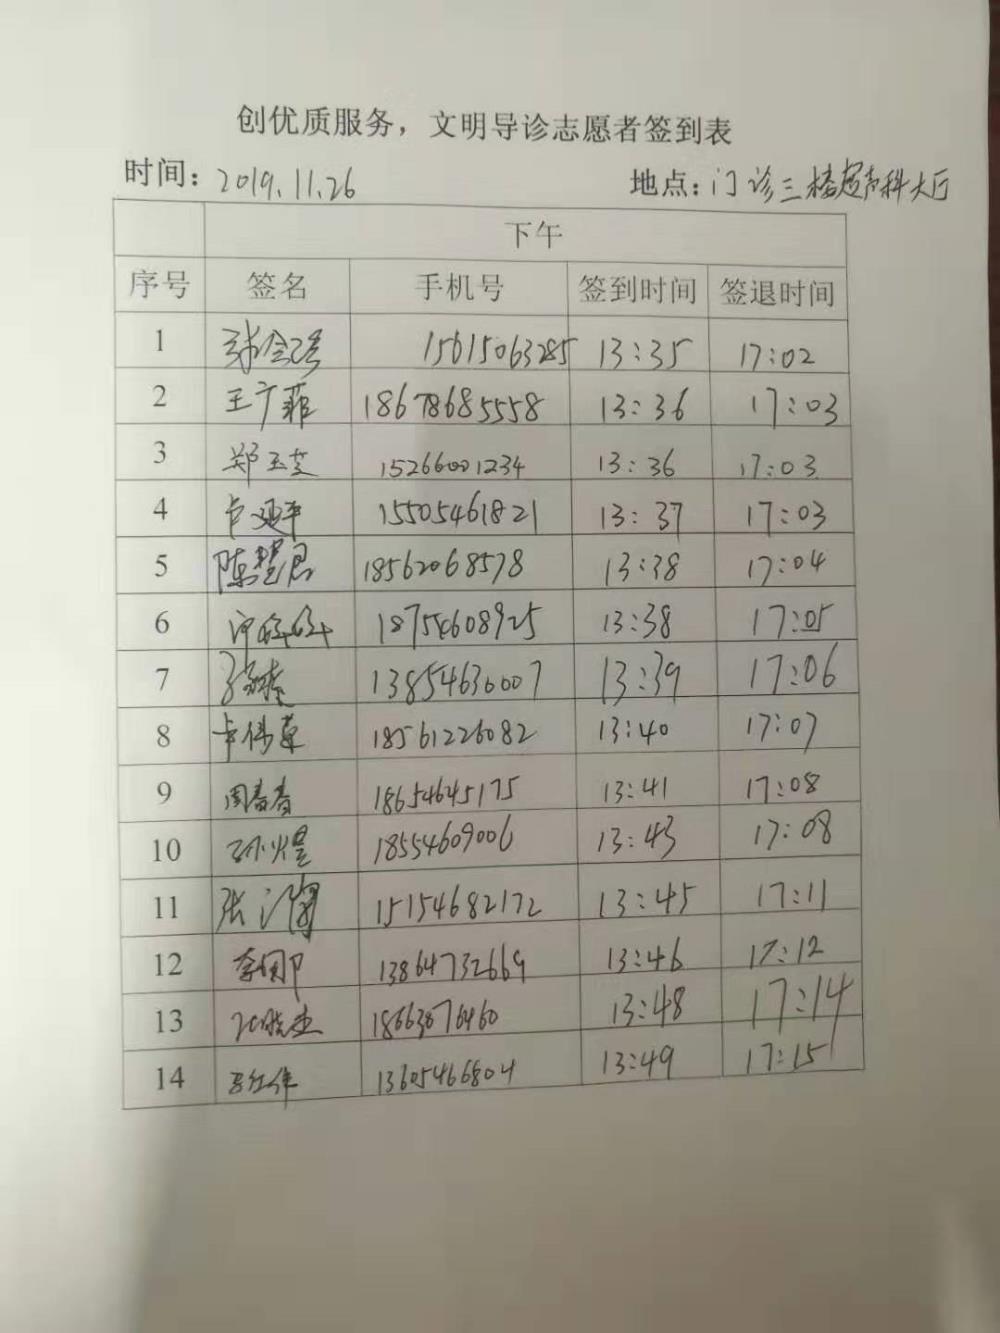 创优质服务，文明导诊志愿者签到表
时间：2019.11.26 地点：门诊三楼超声科大厅
下午
序号 签名 手机号 签到时间 签退时间
1 15615063285 13:35 17:02
2 王广菲 18678685558 13:36 17:03
3 郑玉芝 15266001234 13:36 17:03
4 卢延平 15505461821 13:37 17:03
5 陈慧君 18562068578 13:38 17:04
6 18754608925 13:38 17:05
7 13854630007 13:39 17:06
8 18561226082 13:40 17:07
9 周春春 18654645175 13:41 17:08
10 孙煜 18554609006 13:43 17:08
11 张 15154682172 13:45 17:11
12 李娜 13864732669 13:46 17:12
13 18663076460 13:48 17:14
14 13605466804 13:49 17:15